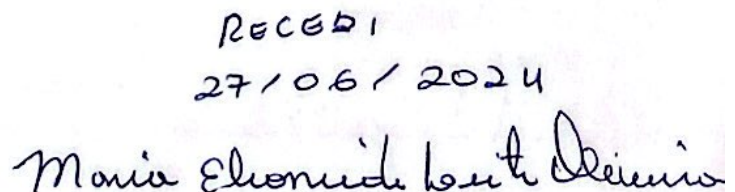 RECEBI
27/06/2024
Maria Eleonilde Leite Oliveira